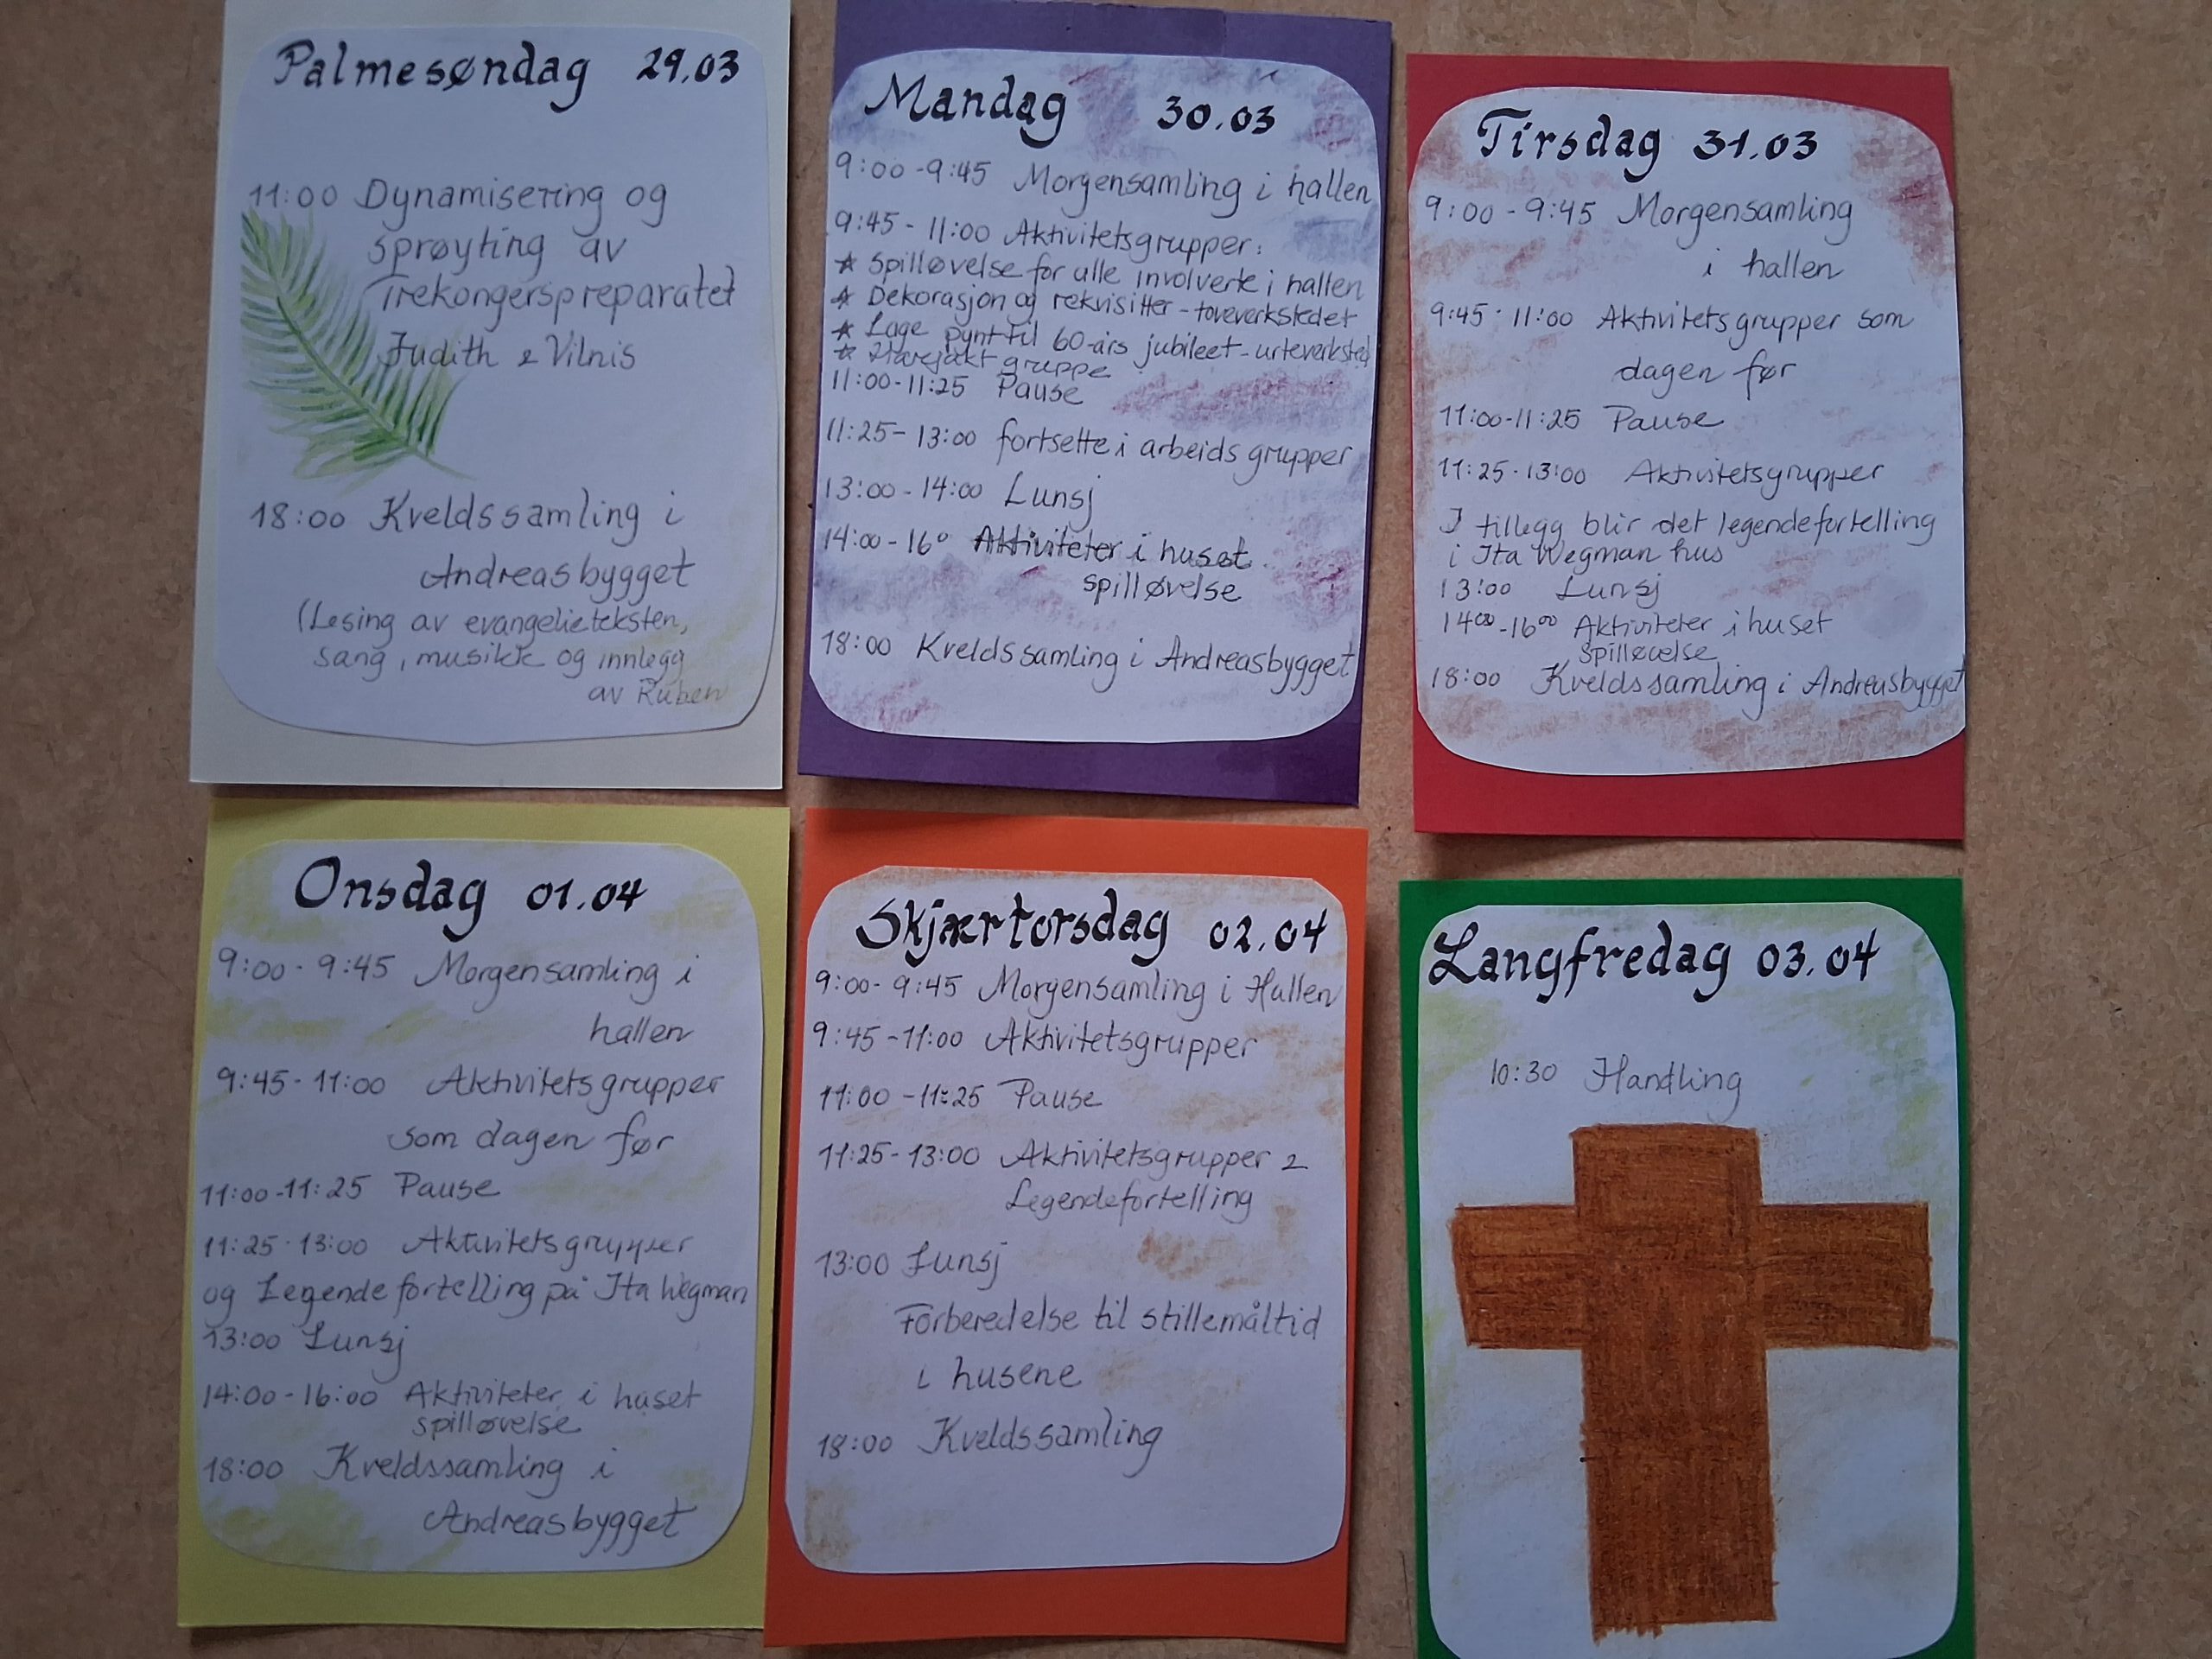 Palmesøndag 29.03
11:00 Dynamisering og
sprøyting av
Trekongerspreparatet
Judith & Vilnis
18:00 Kveldssamling i
Andreasbygget
(Lesing av evangelieteksten,
sang, musikk og innlegg
av Ruben
Mandag 30.03
9:00-9:45 Morgensamling i hallen
9:45-11:00 Aktivitetsgrupper:
☆ Spilløvelse for alle involverte i hallen
☆ Dekorasjon og rekvisitter - toveverkstedet
☆ Lage pynt til 60-års jubileet - urteverksted
☆ gruppe
11:00-11:25 Pause
11:25-13:00 fortsette i arbeids grupper
13:00-14:00 Lunsj
14:00-16⁰ Aktiviteter i huset.
spilløvelse
18:00 Kveldssamling i Andreasbygget
Tirsdag 31.03
9:00-9:45 Morgensamling
i hallen
9:45-11:00 Aktivitetsgrupper som
dagen før
11:00-11:25 Pause
11:25-13:00 Aktivitetsgrupper
I tillegg blir det legendefortelling
i Ita Wegman hus
13:00 Lunsj
14⁰⁰-16⁰⁰ Aktiviteter i huset
spilløvelse
18:00 Kveldssamling i Andreasbygget
Onsdag 01.04
9:00-9:45 Morgensamling i
hallen
9:45-11:00 Aktivitetsgrupper
som dagen før
11:00-11:25 Pause
11:25-13:00 Aktivitetsgrupper
og Legendefortelling på Ita Wegman
13:00 Lunsj
14:00-16:00 Aktiviteter i huset
spilløvelse
18:00 Kveldssamling i
Andreasbygget
Skjærtorsdag 02.04
9:00-9:45 Morgensamling i Hallen
9:45-11:00 Aktivitetsgrupper
11:00-11:25 Pause
11:25-13:00 Aktivitetsgrupper &
Legendefortelling
13:00 Lunsj
Forberedelse til stillemåltid
i husene
18:00 Kveldssamling
Langfredag 03.04
10:30 Handling